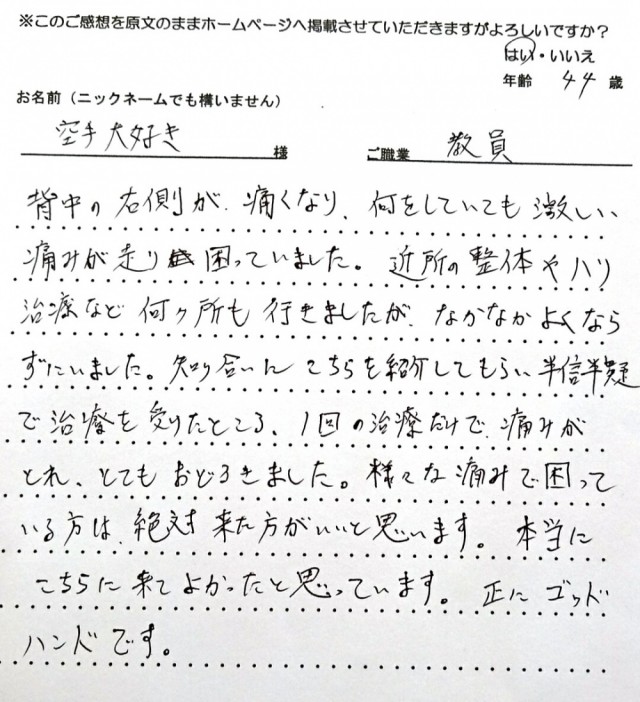 ※このご感想を原文のままホームページへ掲載させていただきますがよろしいですか？
はい・いいえ
年齢 44 歳
お名前（ニックネームでも構いません）
空手大好き 様 ご職業 教員
背中の右側が、痛くなり、何をしていても激しい
痛みが走り困っていました。近所の整体やハリ
治療など何ヶ所も行きましたが、なかなかよくなら
ずにいました。知り合いにこちらを紹介してもらい半信半疑
で治療を受けたところ、1回の治療だけで、痛みが
とれ、とてもおどろきました。様々な痛みで困って
いる方は、絶対来た方がいいと思います。本当に
こちらに来てよかったと思っています。正にゴッド
ハンドです。